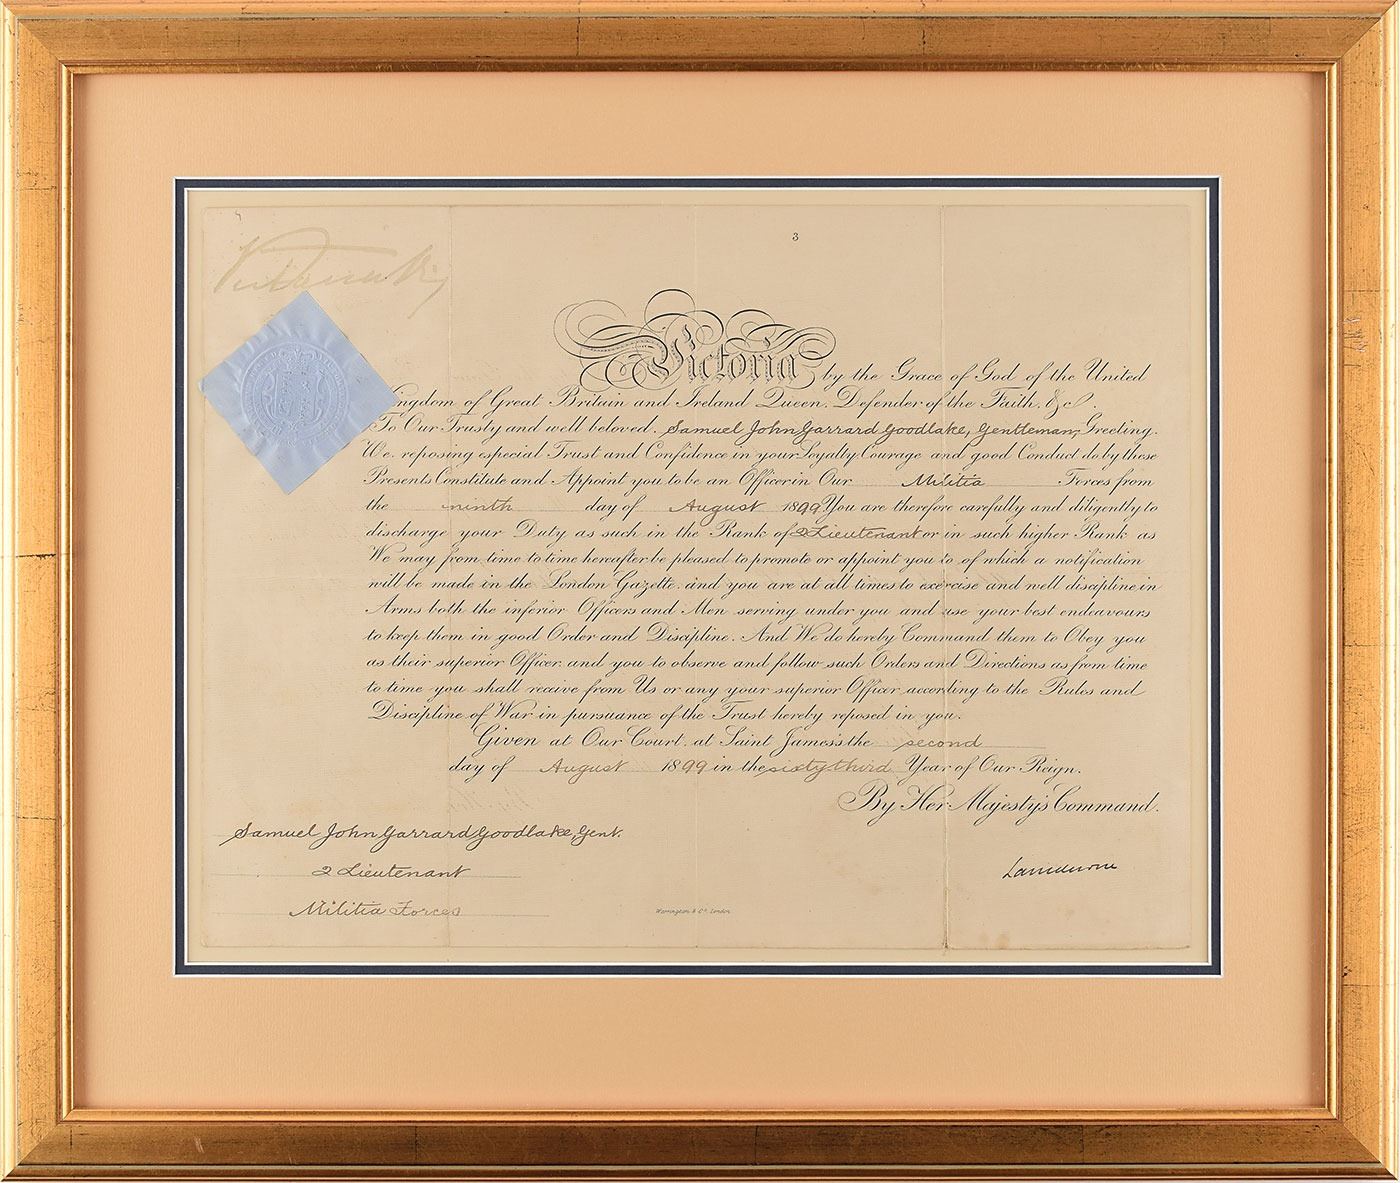 3
Victoria by the Grace of God of the United
Kingdom of Great Britain and Ireland Queen. Defender of the Faith, &c.
To Our Trusty and well beloved. Samuel John Garrard Goodlake, Gentleman, Greeting.
We. reposing especial Trust and Confidence in your Loyalty, Courage and good Conduct do by these
Presents Constitute and Appoint you to be an Officer in Our Militia Forces from
the ninth day of August 1899 You are therefore carefully and diligently to
discharge your Duty as such in the Rank of 2 Lieutenant or in such higher Rank as
We may from time to time hereafter be pleased to promote or appoint you to of which a notification
will be made in the London Gazette. and you are at all times to exercise and well discipline in
Arms both the inferior Officers and Men serving under you and use your best endeavours
to keep them in good Order and Discipline. And We do hereby Command them to Obey you
as their superior Officer and you to observe and follow such Orders and Directions as from time
to time you shall receive from Us or any your superior Officer according to the Rules and
Discipline of War in pursuance of the Trust hereby reposed in you.
Given at Our Court. at Saint James's the second
day of August 1899 in the sixty third Year of Our Reign.
By Her Majesty's Command.
Samuel John Garrard Goodlake, Gent.
2 Lieutenant
Militia Forces
Lansdowne
Warrington & Co. London